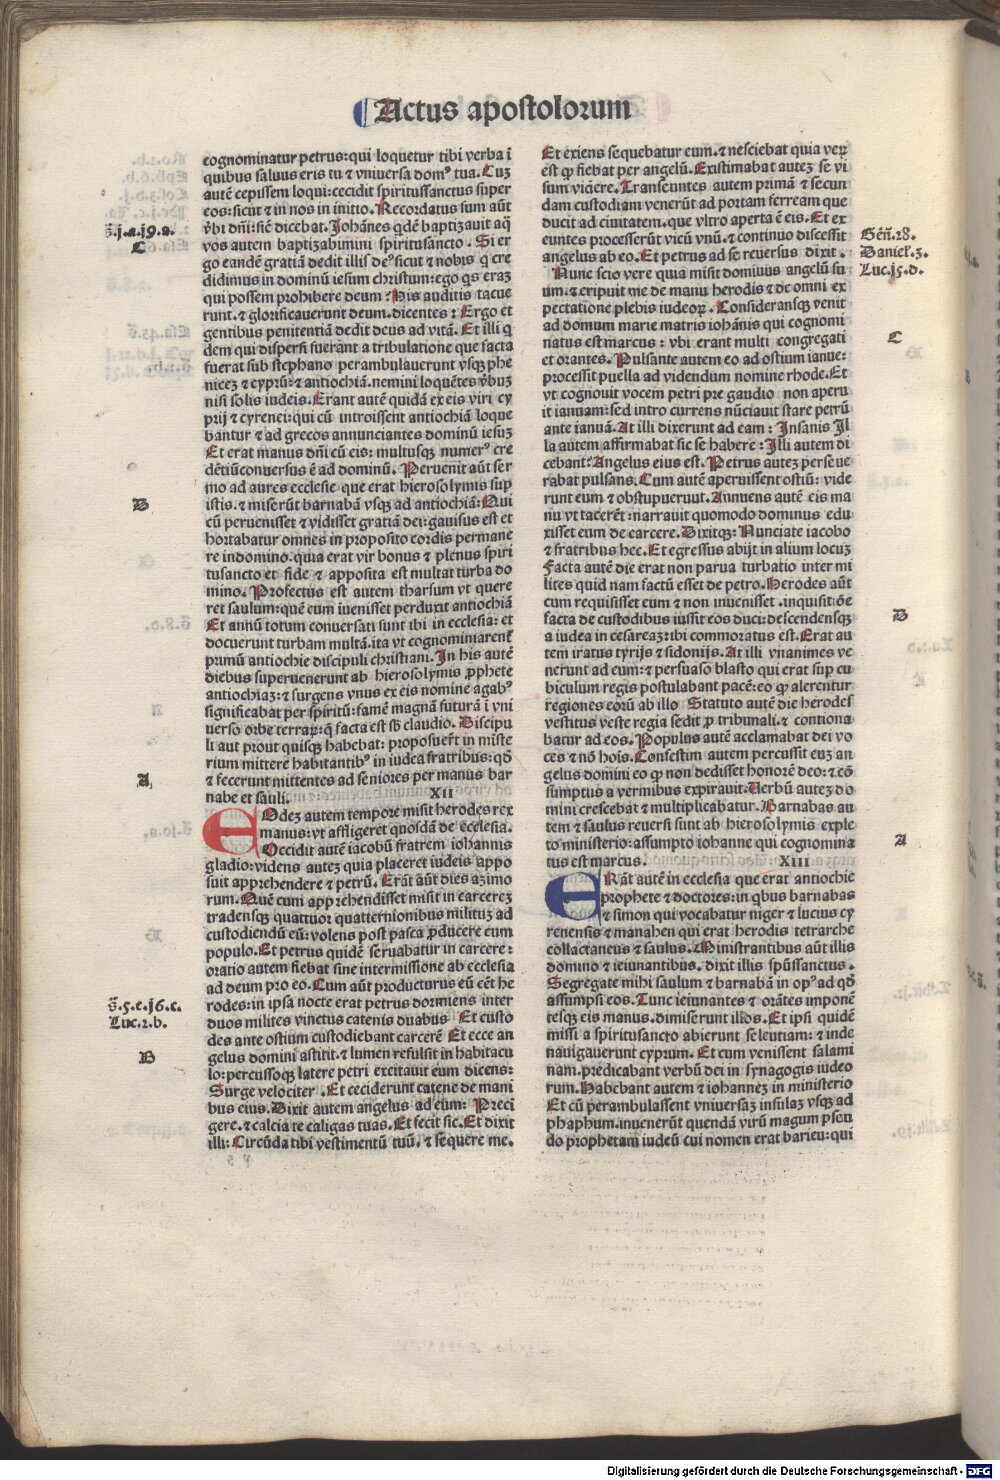 Actus apostolorum
cognominatur petrus: qui loquetur tibi verba ī
quibus saluus eris tu ⁊ vniuersa domꝰ tua. Cuʒ
autē cepissem loqui: cecidit spiritussanctus super
eos: sicut ⁊ in nos in initio. Recordatus sum aūt
v̄bi dn̄i: sicē dicebat. Johānes qdē baptizauit aq̄
vos autem baptizabimini spiritusancto. Si er
go eandē gratiā dedit illis deꝰ sicut ⁊ nobis q cre
didimus in dominū iesum christum: ego qs eraʒ
qui possem prohibere deum? His auditis tacue
runt. ⁊ glorificauerunt deum. dicentes: Ergo et
gentibus penitentiā dedit deus ad vitā. Et illi q
dem qui dispersi fuerant a tribulatione que facta
fuerat sub stephano perambulauerunt vsqʒ phe
niceʒ ⁊ cyprū: ⁊ antiochiā. nemini loquētes v̄buʒ
nisi solis iudeis. Erant autē quidā ex eis viri cy
prij ⁊ cyrenei: qui cū introissent antiochiā loque
bantur ⁊ ad grecos annunciantes dominū iesuʒ
Et erat manus dn̄i cū eis: multusqʒ numerꝰ cre
dētiūconuersus ē ad dominū. Peruenit aūt ser
mo ad aures ecclesie que erat hierosolymis sup
istis. ⁊ miserūt barnabā vsqʒ ad antiochiā: Qui
cū peruenisset ⁊ vidisset gratiā dei: gauisus est et
hortabatur omnes in proposito cordis permane
re indomino. quia erat vir bonus ⁊ plenus spiri
tusancto et fide ⁊ apposita est multat turba do
mino. Profectus est autem tharsum vt quere
ret saulum: quē cum iuenisset perduxit antiochiā
Et annū totum conuersati sunt ibi in ecclesia: et
docuerunt turbam multā. ita vt cognominarent
primū antiochie discipuli christiani. In his autē
diebus superuenerunt ab hierosolymis ꝓphete
antiochiaʒ: ⁊ surgens vnus ex eis nomine agabꝰ
significabat per spiritū: famē magnā futurā ī vni
uerso orbe terraꝝ: q̄ facta est sb̄ claudio. Discipu
li aut prout quisqʒ habebat: proposuer̄t in miste
rium mittere habitantibꝰ in iudea fratribus: qd̄
⁊ fecerunt mittentes ad seniores per manus bar
nabe et sauli.
XII
EOdeʒ autem tempore misit herodes rex
manus: vt affligeret quosdā de ecclesia.
Occidit autē iacobū fratrem iohannis
gladio: videns auteʒ quia placeret iudeis appo
suit apprehendere ⁊ petrū. Erāt aūt dies azimo
rum. Quē cum apprehendisset misit in carcereʒ
tradensqʒ quattuor quatternionibus militiūʒ ad
custodiendū eū: volens post pasca ꝓducere eum
populo. Et petrus quidē seruabatur in carcere:
oratio autem fiebat sine intermissione ab ecclesia
ad deum pro eo. Cum aūt producturus eū eēt he
rodes: in ipsa nocte erat petrus dormiens inter
duos milites vinctus catenis duabus Et custo
des ante ostium custodiebant carcerē Et ecce an
gelus domini astitit. ⁊ lumen refulsit in habitacu
lo: percussoqʒ latere petri excitauit eum dicens:
Surge velociter. Et ceciderunt catene de mani
bus eius. Dixit autem angelus ad eum: Preci
gere. ⁊ calcia te caligas tuas. Et fecit sic. Et dixit
illi: Circūda tibi vestimentū tuū. ⁊ sequere me.
s̄.j.a.j9.a.
C
B
A
s̄.5.c.j6.c.
Luc.2.b.
B
Et exiens sequebatur eum. ⁊ nesciebat quia veꝝ
est qꝫ fiebat per angelū. Existimabat auteʒ se vi
sum vidēre. Transeuntes autem primā ⁊ secun
dam custodiam venerūt ad portam ferream que
ducit ad ciuitatem. que vltro aperta ē eis. Et ex
euntes processerūt vicū vnū. ⁊ continuo discessit
angelus ab eo. Et petrus ad se reuersus dixit.
Nunc scio vere quia misit dominus angelū su
um. ⁊ eripuit me de manu herodis ⁊ de omni ex
pectatione plebis iudeoꝝ. Consideransqʒ venit
ad domum marie matris iohānis qui cognomi
natus est marcus: vbi erant multi congregati
et orantes. Pulsante autem eo ad ostium ianue:
processit puella ad videndum nomine rhode. Et
vt cognouit vocem petri pre gaudio non aperu
it ianuam: sed intro currens nūciauit stare petrū
ante ianuā. At illi dixerunt ad eam: Insanis Il
la autem affirmabat sic se habere: Illi autem di
cebant: Angelus eius est. Petrus auteʒ perseue
rabat pulsans. Cum autē aperuissent ostiū: vide
runt eum ⁊ obstupuerunt. Annuens autē eis ma
nu vt tacerēt: narrauit quomodo dominus edu
xisset eum de carcere. Dixitqʒ: Nunciate iacobo
⁊ fratribus hec. Et egressus abijt in alium locuʒ
Facta autē die erat non parua turbatio inter mi
lites quid nam factū esset de petro. Herodes aūt
cum requisisset eum ⁊ non inuenisset. inquisitiōe
facta de custodibus iussit eos duci: descendensqʒ
a iudea in cesareaʒ: ibi commoratus est. Erat au
tem iratus tyrijs ⁊ sidonijs. At illi vnanimes ve
nerunt ad eum: ⁊ persuaso blasto qui erat sup cu
biculum regis postulabant pacē: eo qꝫ alerentur
regiones eorū ab illo Statuto autē die herodes
vestitus veste regia sedit ꝓ tribunali. ⁊ contiona
batur ad eos. Populus autē acclamabat dei vo
ces ⁊ nō hois. Confestim autem percussit euʒ an
gelus domini eo qꝫ non dedisset honorē deo: ⁊ cō
sumptus a vermibus expirauit. Uerbū auteʒ do
mini crescebat ⁊ multiplicabatur. Barnabas au
tem ⁊ saulus reuersi sunt ab hierosolymis exple
to ministerio: assumpto iohanne qui cognomina
tus est marcus.
XIII
ERāt autē in ecclesia que erat antiochie
prophete ⁊ doctores: in qbus barnabas
⁊ simon qui vocabatur niger ⁊ lucius cy
renensis ⁊ manahen qui erat herodis tetrarche
collactaneus ⁊ saulus. Ministrantibus aūt illis
domino ⁊ ieiunantibus. dixit illis spūssanctus.
Segregate mihi saulum ⁊ barnabā in opꝰ ad qd̄
assumpsi eos. Tunc ieiunantes ⁊ orātes imponē
tesqʒ eis manus. dimiserunt illos. Et ipsi quidē
missi a spiritusancto abierunt seleutiam: ⁊ inde
nauigauerunt cyprum. Et cum venissent salami
nam. predicabant verbū dei in synagogis iudeo
rum. Habebant autem ⁊ iohanneʒ in ministerio
Et cū perambulassent vniuersaʒ insulaʒ vsqʒ ad
phaphum. inuenerūt quendā virū magum pseu
do prophetam iudeū cui nomen erat barieu: qui
Gēn̄.28.
Daniel.3.
Luc.j5.d.
C
B
A
Digitalisierung gefördert durch die Deutsche Forschungsgemeinschaft - DFG